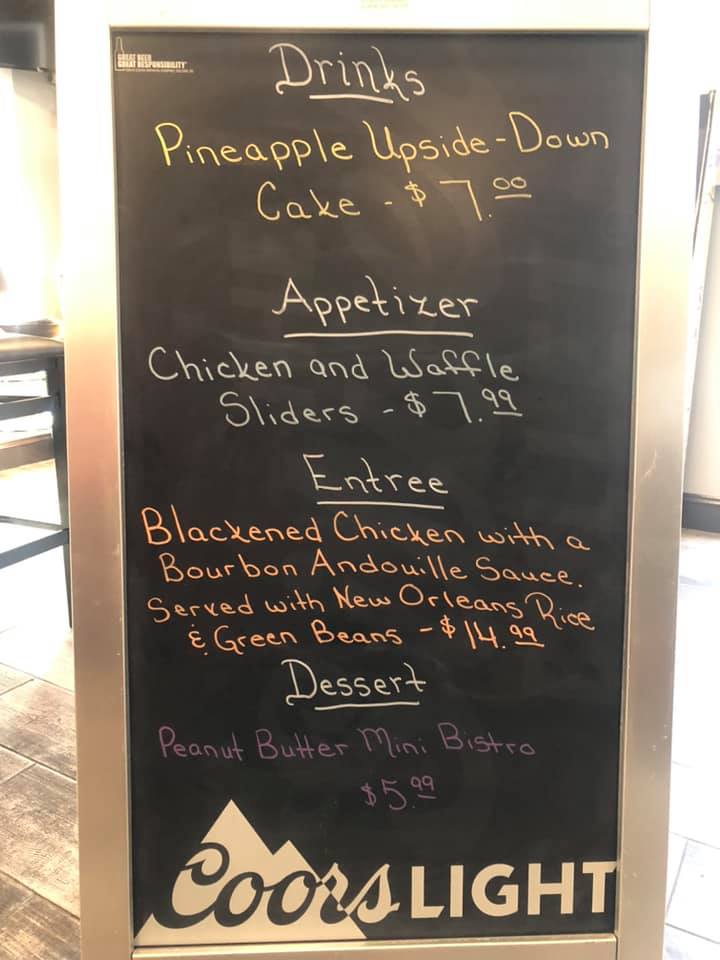 GREAT BEER
GREAT RESPONSIBILITY
Drinks
Pineapple Upside-Down
Cake - $7.00
Appetizer
Chicken and Waffle
Sliders - $7.99
Entree
Blackened Chicken with a
Bourbon Andouille Sauce.
Served with New Orleans Rice
& Green Beans - $14.99
Dessert
Peanut Butter Mini Bistro
$5.99
Coors LIGHT